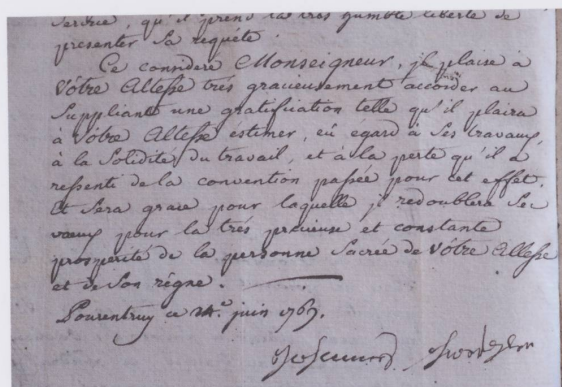 Service, qu'il prend la tres humble liberté de
presenter Sa requête
Ce consideré Monseigneur, jl plaise à
Vôtre Altesse trés gracieusement accorder au
Suppliant une gratification telle qu'il plaira
à Vôtre Altesse estimer, eû égard à Ses travaux,
à la Solidité du travail, et à la perte qu'il a
ressenti de la convention passée pour cet effet.
Et Sera grace pour laquelle jl redoublera Ses
voeux pour la trés précieuse et constante
prosperité de la personne Sacrée de Vôtre Altesse
et de Son régne.
Pourentruy ce juin 1767.